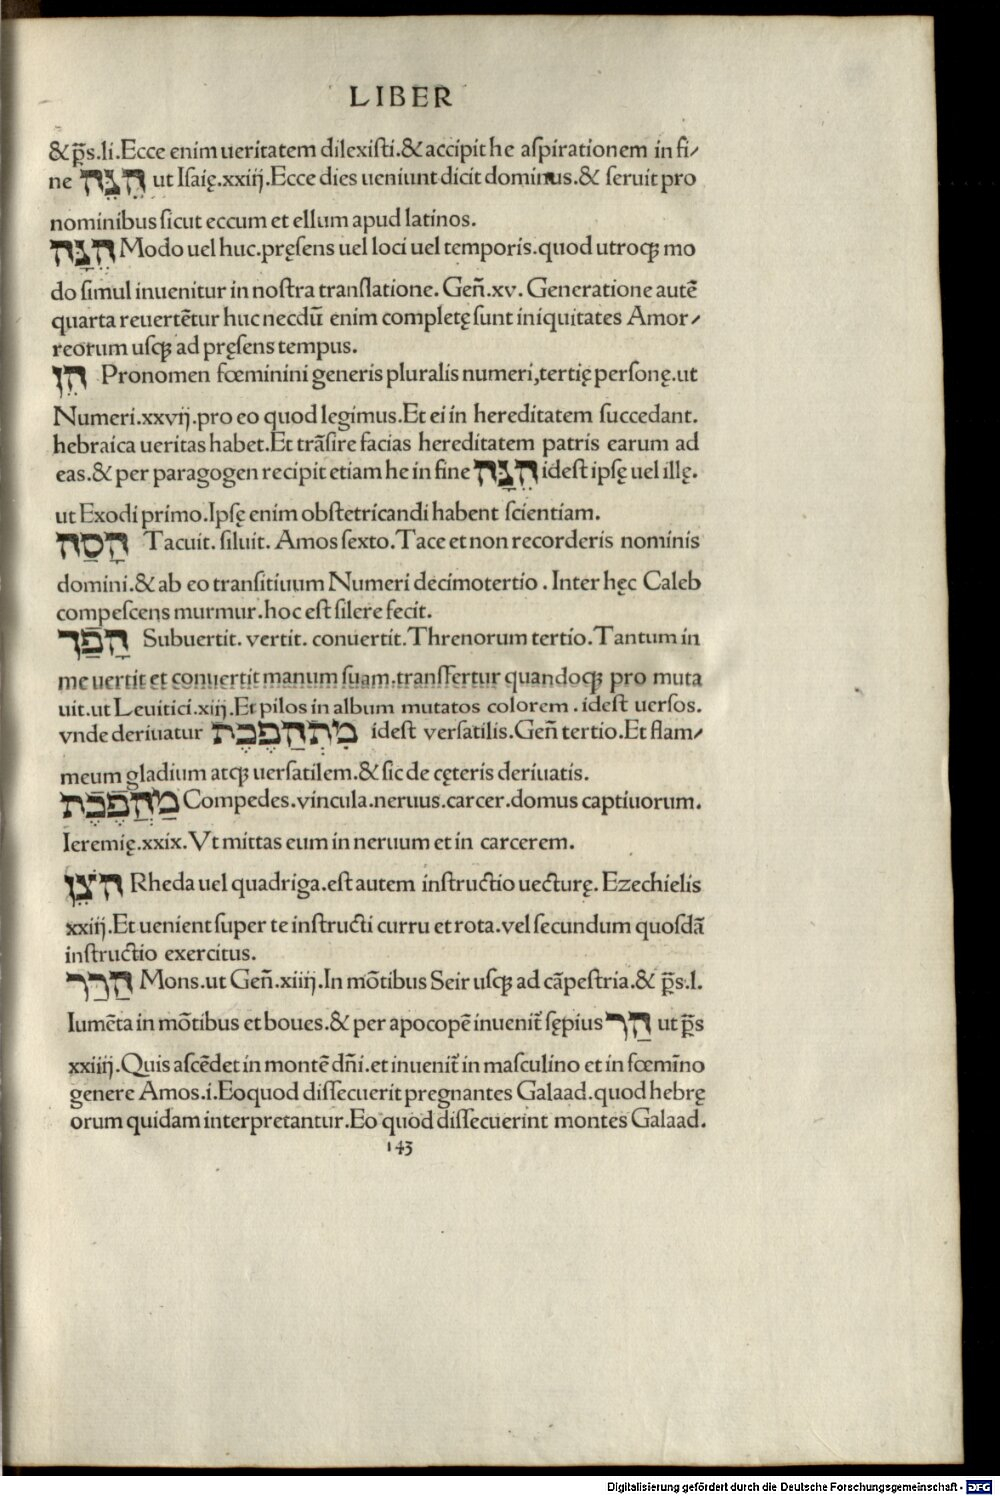 LIBER
&p̃s.li.Ecce enim ueritatem dilexiſti.&accipit he aſpirationem in fi⸗
ne הִנֵּה ut Iſaię.xxiij.Ecce dies ueniunt dicit dominus.& ſeruit pro
nominibus ſicut eccum et ellum apud latinos.
הֵנָּה Modo uel huc.pręſens uel loci uel temporis.quod utroqꝫ mo
do ſimul inuenitur in noſtra tranſlatione. Geñ.xv. Generatione autẽ
quarta reuertẽtur huc necdũ enim completę ſunt iniquitates Amor⸗
reorum uſqꝫ ad pręſens tempus.
הֵן Pronomen fœminini generis pluralis numeri,tertię perſonę.ut
Numeri.xxvij.pro eo quod legimus.Et ei in hereditatem ſuccedant.
hebraica ueritas habet.Et trãſire facias hereditatem patris earum ad
eas.& per paragogen recipit etiam he in fine הֵנָּה ideſt ipſę uel illę.
ut Exodi primo.Ipſę enim obſtetricandi habent ſcientiam.
הָסַה Tacuit. ſiluit. Amos ſexto.Tace et non recorderis nominis
domini.& ab eo tranſitiuum Numeri decimotertio . Inter hęc Caleb
compeſcens murmur.hoc eſt ſilere fecit.
הָפַך Subuertit. vertit. conuertit.Threnorum tertio.Tantum in
me uertit et conuertit manum ſuam.tranſfertur quandoqꝫ pro muta
uit.ut Leuitici.xiij.Et pilos in album mutatos colorem . ideſt uerſos.
vnde deriuatur מִתְהַפֶכֶת ideſt verſatilis.Geñ tertio.Et flam⸗
meum gladium atqꝫ uerſatilem.& ſic de cęteris deriuatis.
מַהֲפֶכֶת Compedes.vincula.neruus.carcer.domus captiuorum.
Ieremię.xxix.Vt mittas eum in neruum et in carcerem.
הֹצֶן Rheda uel quadriga.eſt autem inſtructio uecturę. Ezechielis
xxiij.Et uenient ſuper te inſtructi curru et rota.vel ſecundum quoſdã
inſtructio exercitus.
הַרַר Mons.ut Geñ.xiiij.In mõtibus Seir uſqꝫ ad cãpeſtria.& p̃s.l.
Iumẽta in mõtibus et boues.& per apocopẽ inuenit᷑ ſępius הַר ut p̃s
xxiiij.Quis aſcẽdet in montẽ dñi.et inuenit᷑ in maſculino et in fœmĩno
genere Amos.i.Eoquod diſſecuerit pregnantes Galaad.quod hebrę
orum quidam interpretantur.Eo quod diſſecuerint montes Galaad.
143
Digitalisierung gefördert durch die Deutsche Forschungsgemeinschaft - DFG